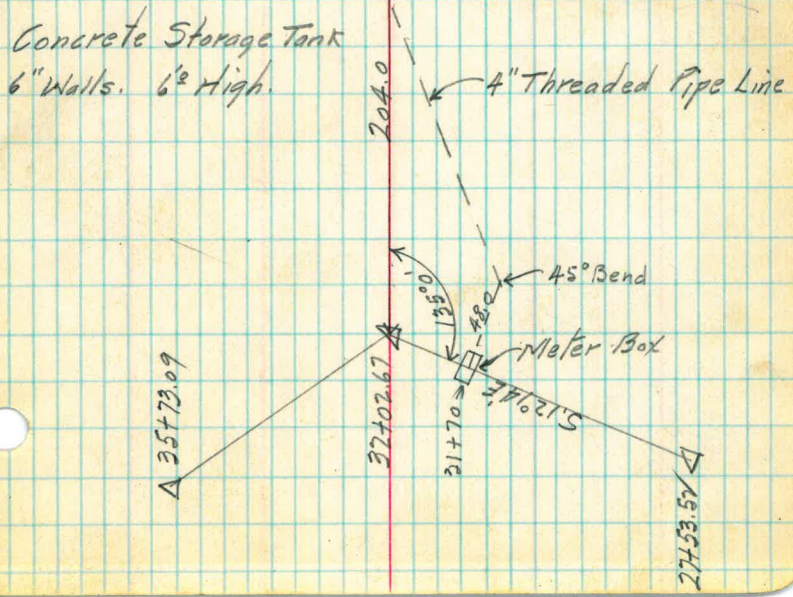 Concrete Storage Tank
6" Walls. 6'0 High.
204.0
4" Threaded Pipe Line
45° Bend
135°0'
48.0
Meter Box
35+73.09
32+02.67
31+70
S.12°14'E
27+53.52